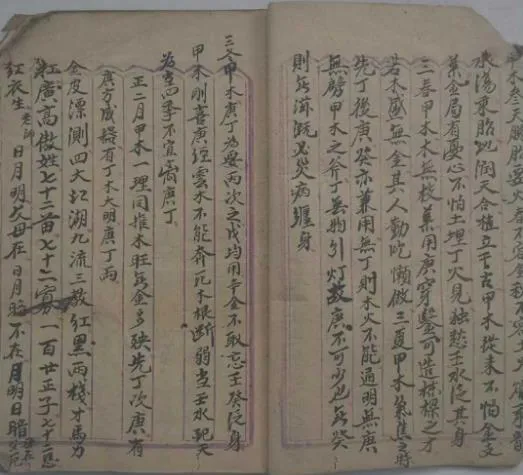 甲木叁天脫胎要火春不容金秋不容土
水湯乘龍地潤天合植立千古甲木從来不怕金支
葉金局有憂心不怕土埋丁火見独愁壬水泛其身
三春甲木木無枝葉用庚穿鑿可造棟樑之才
若木盛無金其人勤吃懶做三夏甲木氣焦之時
先丁後庚癸亦兼用無丁則木火不能通明無庚
無劈甲木之斧丁無物引灯故庚不可少也無癸
則無滋既必災病纏身
三冬甲木庚丁為要丙次之戊均用辛金不取忘壬癸泛身
甲木剛喜庚經雲水不能奔死木根断弱当壬水配天
為当四季不宜齊庚丁
正二月甲木一理同推木旺無金多殃先丁次庚有
庚方成器有丁木大明庚丁両
金皮漂測四大江湖九流三教紅黑兩棧才馬力
紅廣高傲姓七十二苗七十二寡一百廿正子七十二
紅衣生老師日月明父母在日月暗不在月明日暗